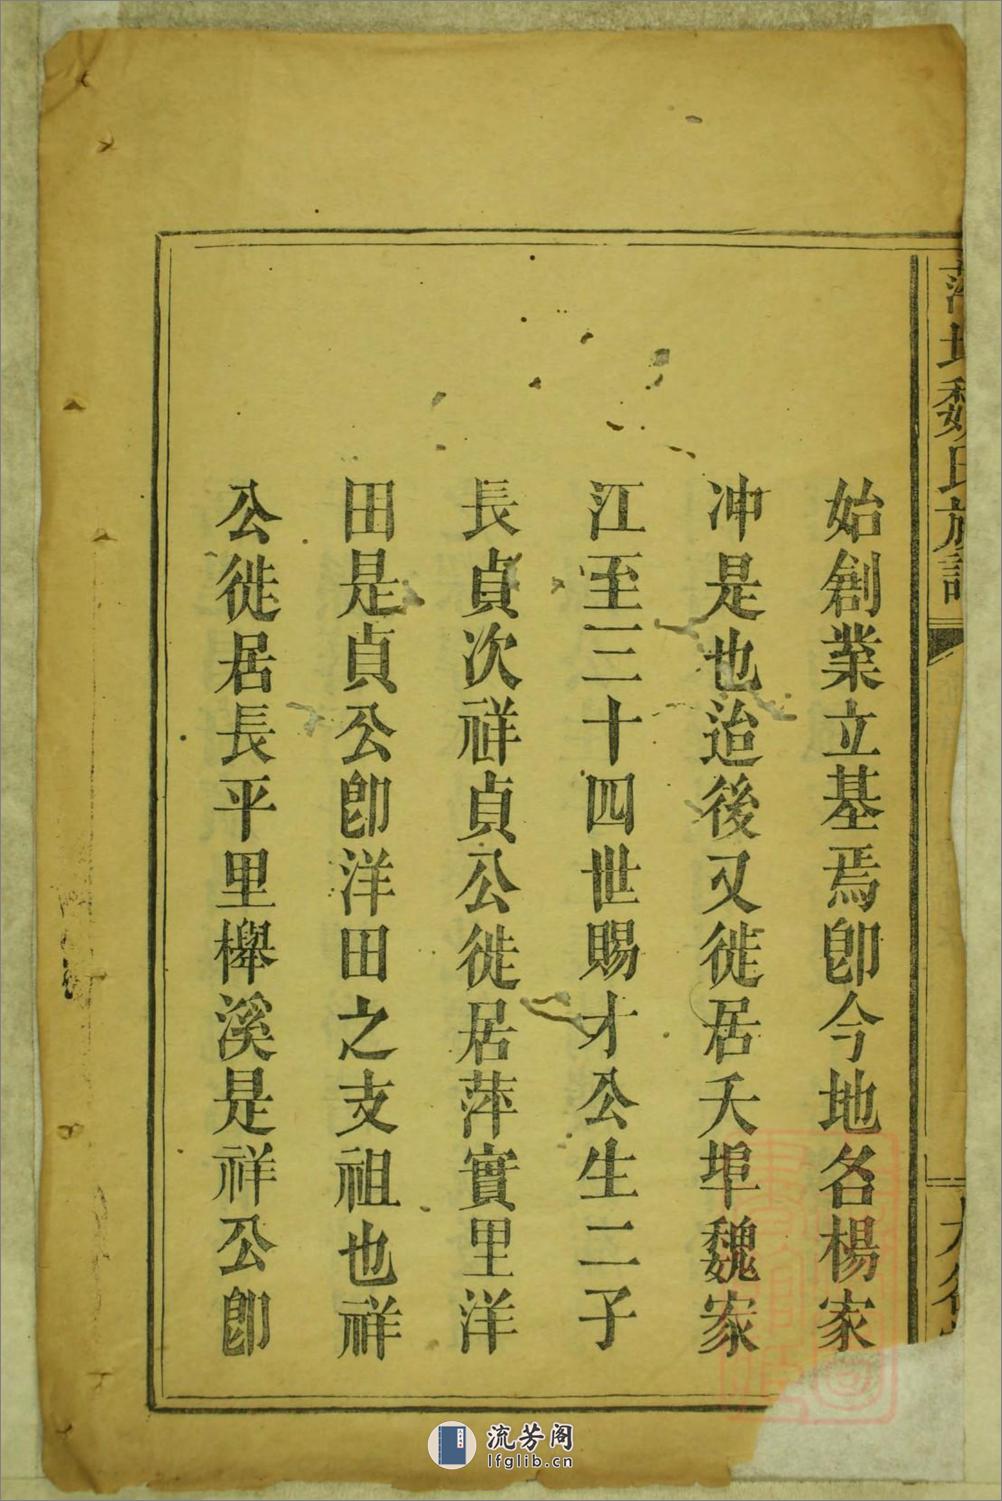 始創業立基焉卽今地名楊家
冲是也迨後又徙居天埠魏家
江至三十四世賜才公生二子
長貞次祥貞公徙居萍實里洋
田是貞公卽洋田之支祖也祥
公徙居長平里櫸溪是祥公卽
魏氏族譜
流芳阁
lfglib.cn